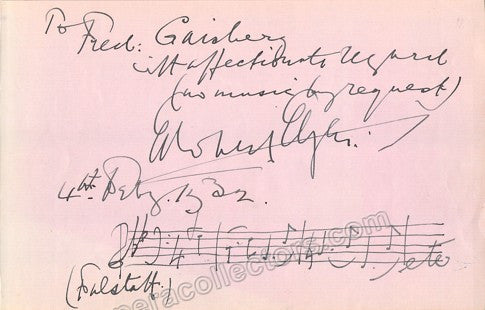 To
Fred: Gaisberg
with affectionate regard
(no music by request)
4th Feby 1932.
etc
(Falstaff)
operacollectors.com